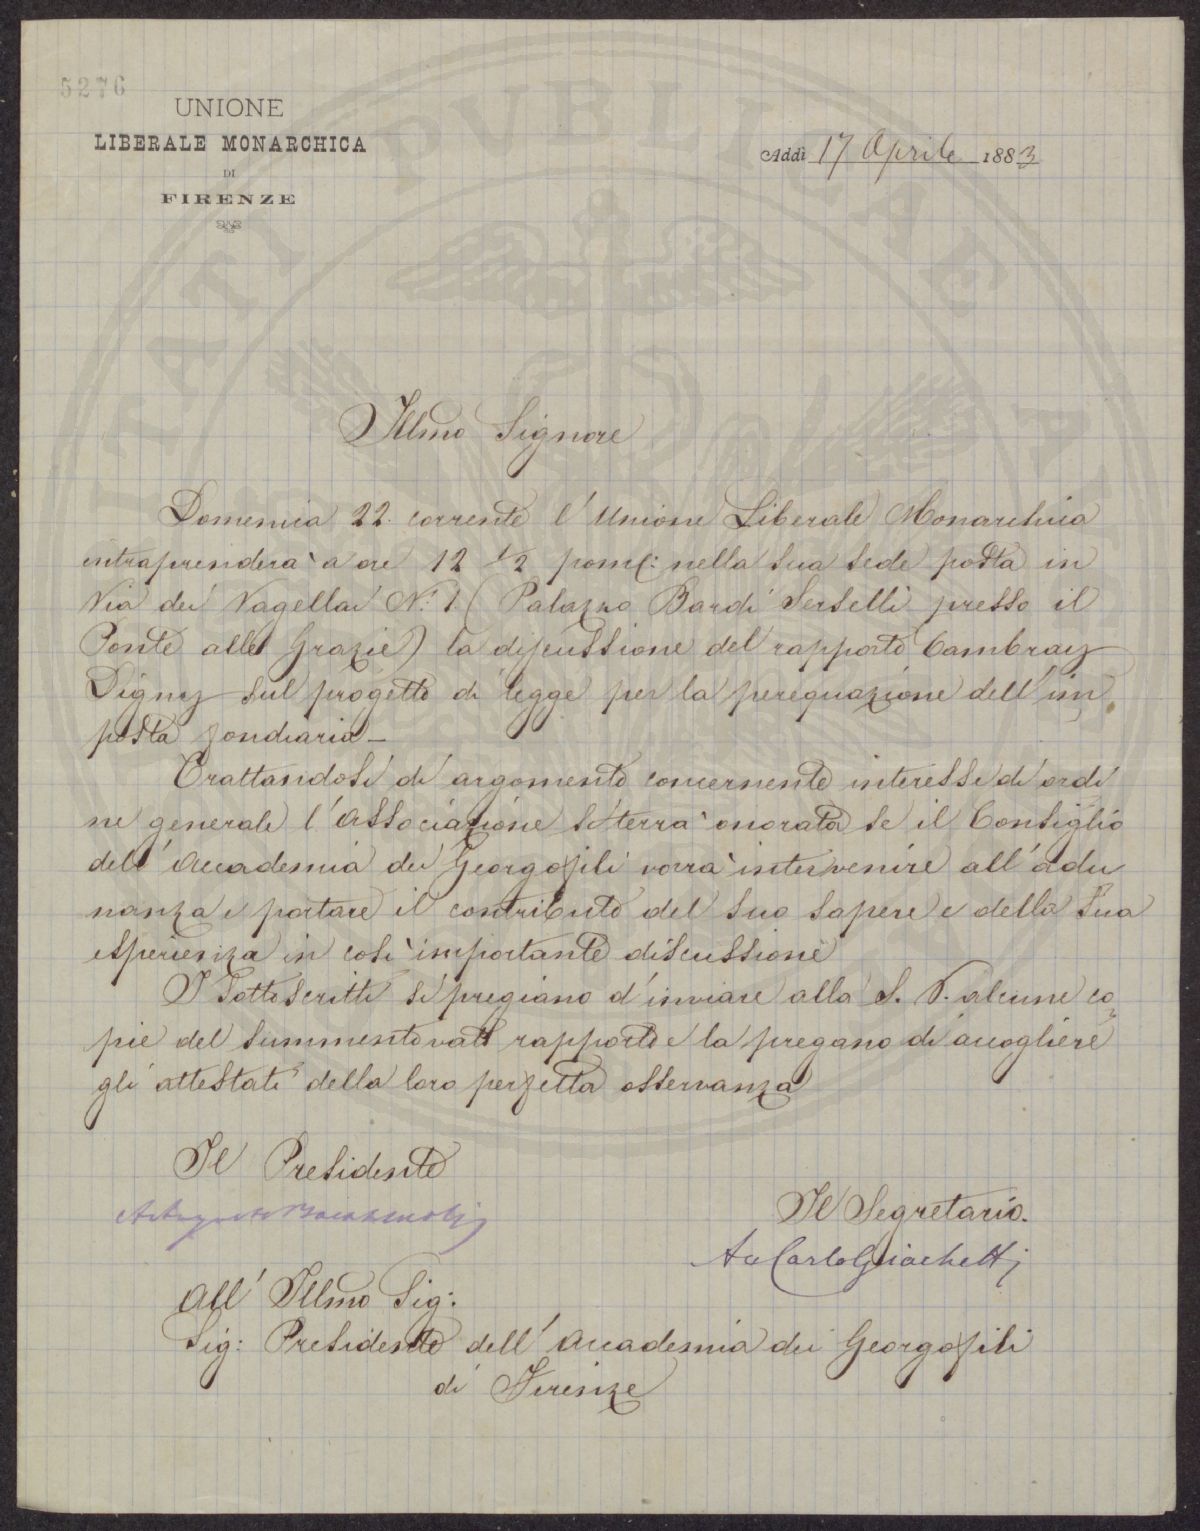 5276
UNIONE
LIBERALE MONARCHICA
DI
FIRENZE
Addì 17 Aprile 1883
Illmo Signore
Domenica 22 corrente l'Unione Liberale Monarchica
intraprenderà a ore 12 1/2 pom: nella sua sede posta in
Via dei Vagellai N. 1 (Palazzo Bardi Serselli presso il
Ponte alle Grazie) la discussione del rapporto Cambray
Digny sul progetto di legge per la perequazione dell'im
posta fondiaria —
Trattandosi di argomento concernente interessi di ordi
ne generale l'Associazione si terrà onorata se il Consiglio
dell'Accademia dei Georgofili vorrà intervenire all'adu
nanza e portare il contributo del suo sapere e della sua
esperienza in così importante discussione
I sottoscritti si pregiano d'inviare alla S. V. alcune co
pie del summentovato rapporto e la pregano di accogliere
gli attestati della loro perfetta osservanza
Il Presidente
Il Segretario.
Carlo Giachetti
All' Illmo Sig:
Sig: Presidente dell'Accademia dei Georgofili
di Firenze